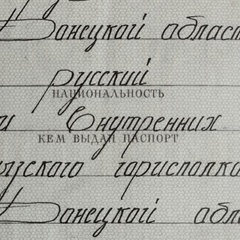 Донецкой област
русский
НАЦИОНАЛЬНОСТЬ
и Внутренних
КЕМ ВЫДАН ПАСПОРТ
узского горисполко
Донецкой обл